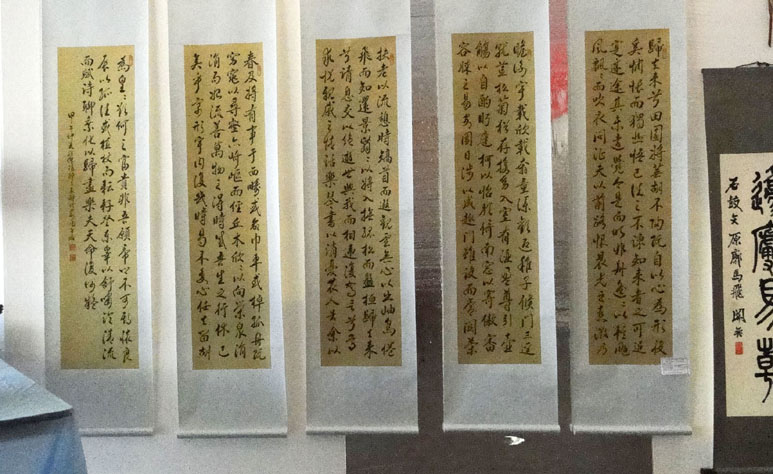 石鼓文
歸去來兮田園將蕪胡不歸既自以心為形役
奚惆悵而獨悲悟已往之不諫知來者之可追
實迷途其未遠覺今是而昨非舟遙〻以輕颺
風飄〻而吹衣問征夫以前路恨晨光之熹微乃
瞻衡宇載欣載奔僮僕歡迎稚子候門三徑
就荒松菊猶存攜幼入室有酒盈樽引壺
觴以自酌眄庭柯以怡顏倚南窗以寄傲審
容膝之易安園日涉以成趣門雖設而常關策
扶老以流憩時矯首而遐觀雲無心以出岫鳥倦
飛而知還景翳〻以將入撫孤松而盤桓歸去來
兮請息交以絕遊世與我而相違復駕言兮焉
求悅親戚之情話樂琴書以消憂農人告余以
春及將有事于西疇或命巾車或棹孤舟既
窈窕以尋壑亦崎嶇而經丘木欣〻以向榮泉涓
涓而始流善萬物之得時感吾生之行休已
矣乎寓形宇內復幾時曷不委心任去留胡
為皇〻欲何之富貴非吾願帝鄉不可期懷良
辰以孤往或植杖而耘耔登東皋以舒嘯臨清流
而賦詩聊乘化以歸盡樂夫天命復何疑